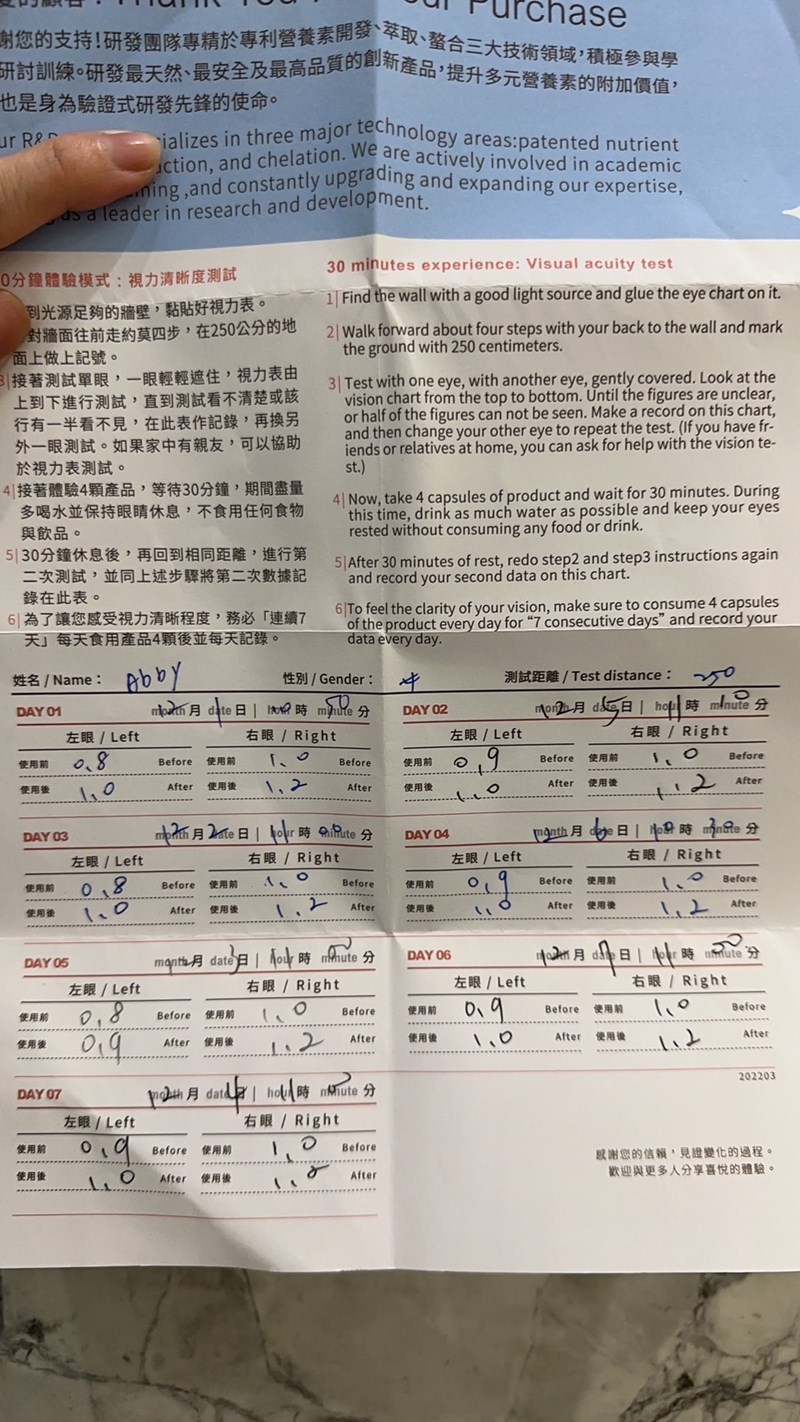 愛的顧客：Thank You For Your Purchase
謝您的支持!研發團隊專精於專利營養素開發、萃取、螯合三大技術領域，積極參與學
研討訓練。研發最天然、最安全及最高品質的創新產品，提升多元營養素的附加價值，
也是身為驗證式研發先鋒的使命。
ializes in three major technology areas:patented nutrient
ction, and chelation. We are actively involved in academic
ning ,and constantly upgrading and expanding our expertise,
as a leader in research and development.
0分鐘體驗模式：視力清晰度測試
到光源足夠的牆壁，黏貼好視力表。
對牆面往前走約莫四步，在250公分的地
面上做上記號。
3|接著測試單眼，一眼輕輕遮住，視力表由
上到下進行測試，直到測試看不清楚或該
行有一半看不見，在此表作記錄，再換另
外一眼測試。如果家中有親友，可以協助
於視力表測試。
4|接著體驗4顆產品，等待30分鐘，期間盡量
多喝水並保持眼睛休息，不食用任何食物
與飲品。
5|30分鐘休息後，再回到相同距離，進行第
二次測試，並同上述步驟將第二次數據記
錄在此表。
6|為了讓您感受視力清晰程度，務必「連續7
天」每天食用產品4顆後並每天記錄。
30 minutes experience: Visual acuity test
1|Find the wall with a good light source and glue the eye chart on it.
2|Walk forward about four steps with your back to the wall and mark
the ground with 250 centimeters.
3|Test with one eye, with another eye, gently covered. Look at the
vision chart from the top to bottom. Until the figures are unclear,
or half of the figures can not be seen. Make a record on this chart,
and then change your other eye to repeat the test. (If you have fr-
iends or relatives at home, you can ask for help with the vision te-
st.)
4|Now, take 4 capsules of product and wait for 30 minutes. During
this time, drink as much water as possible and keep your eyes
rested without consuming any food or drink.
5|After 30 minutes of rest, redo step2 and step3 instructions again
and record your second data on this chart.
6|To feel the clarity of your vision, make sure to consume 4 capsules
of the product every day for “7 consecutive days” and record your
data every day.
姓名 / Name： Abby 性別 / Gender： 女 測試距離 / Test distance： 250
DAY 01 12 month 月 1 date 日 | hour 時 50 minute 分
左眼 / Left 右眼 / Right
使用前 0.8 Before 使用前 1.0 Before
使用後 1.0 After 使用後 1.2 After
DAY 02 12 month 月 5 date 日 | 11 hour 時 10 minute 分
左眼 / Left 右眼 / Right
使用前 0.9 Before 使用前 1.0 Before
使用後 1.0 After 使用後 1.2 After
DAY 03 12 month 月 2 date 日 | 11 hour 時 00 minute 分
左眼 / Left 右眼 / Right
使用前 0.8 Before 使用前 1.0 Before
使用後 1.0 After 使用後 1.2 After
DAY 04 12 month 月 6 date 日 | 10 hour 時 30 minute 分
左眼 / Left 右眼 / Right
使用前 0.9 Before 使用前 1.0 Before
使用後 1.0 After 使用後 1.2 After
DAY 05 month 月 3 date 日 | 11 hour 時 50 minute 分
左眼 / Left 右眼 / Right
使用前 0.8 Before 使用前 1.0 Before
使用後 0.9 After 使用後 1.2 After
DAY 06 12 month 月 7 date 日 | 11 hour 時 50 minute 分
左眼 / Left 右眼 / Right
使用前 0.9 Before 使用前 1.0 Before
使用後 1.0 After 使用後 1.2 After
202203
DAY 07 12 month 月 4 date 日 | 11 hour 時 minute 分
左眼 / Left 右眼 / Right
使用前 0.9 Before 使用前 1.0 Before
使用後 1.0 After 使用後 1.2 After
感謝您的信賴，見證變化的過程。
歡迎與更多人分享喜悅的體驗。